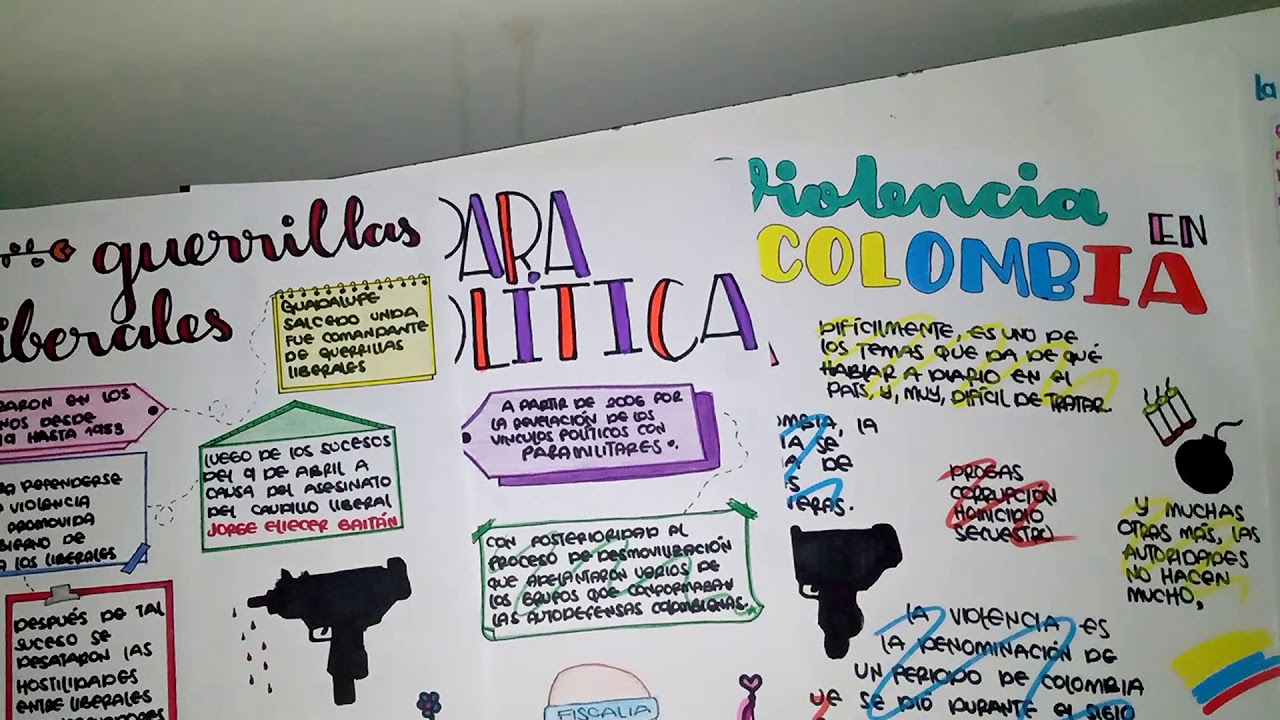 guerrillas
liberales
GUADALUPE
SALCEDO UNDA
FUE COMANDANTE
DE GUERRILLAS
LIBERALES
EN LOS
DESDE
HASTA 1953
LUEGO DE LOS SUCESOS
DEL 9 DE ABRIL A
CAUSA DEL ASESINATO
DEL CAUDILLO LIBERAL
JORGE ELIECER GAITÁN
DEFENDERSE
VIOLENCIA
PROMOVIDA
DE
A LOS LIBERALES
DESPUÉS DE TAL
SUCESO SE
DESATARON LAS
HOSTILIDADES
ENTRE LIBERALES
PARA
POLÍTICA
A PARTIR DE 2006 POR
LA REVELACIÓN DE LOS
VINCULOS POLÍTICOS CON
PARAMILITARES".
CON POSTERIORIDAD AL
PROCESO DE DESMOVILIZACIÓN
QUE ADELANTARON VARIOS DE
LOS GRUPOS QUE CONFORMABAN
LAS AUTODEFENSAS COLOMBIANAS.
FISCALIA
Violencia
EN
COLOMBIA
DIFÍCILMENTE, ES UNO DE
LOS TEMAS QUE DA DE QUÉ
HABLAR A DIARIO EN EL
PAÍS, Y, MUY, DIFÍCIL DE TRATAR.
LA
SE
DE
DROGAS
CORRUPCIÓN
HOMICIDIO
SECUESTRO
Y MUCHAS
OTRAS MÁS, LAS
AUTORIDADES
NO HACEN
MUCHO,
LA VIOLENCIA ES
LA DENOMINACIÓN DE
UN PERIODO DE COLOMBIA
SE DIÓ DURANTE EL SIGLO
la